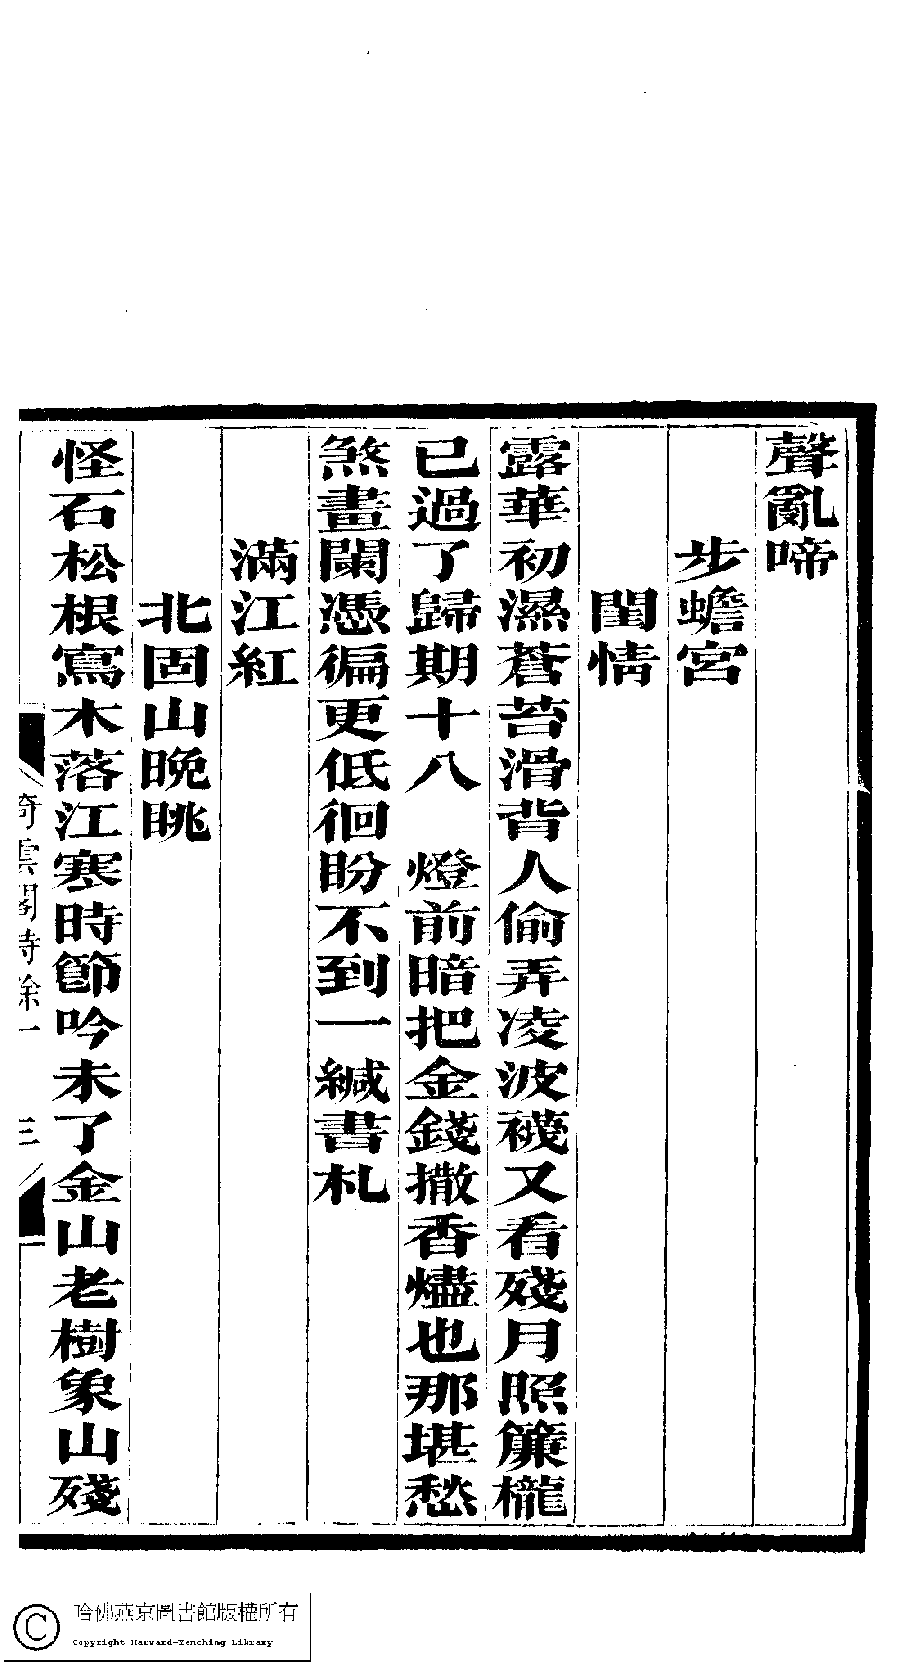 聲亂啼
步蟾宮
閨情
露華初濕蒼苔滑背人偷弄凌波襪又看殘月照簾櫳
已過了歸期十八　燈前暗把金錢撒香燼也那堪愁
煞畫闌憑徧更低徊盼不到一緘書札
滿江紅
北固山晚眺
怪石松根寫木落江寒時節吟未了金山老樹象山殘
倚雲閣詩餘一
三
哈佛燕京圖書館版權所有
Copyright Harvard-Yenching Library